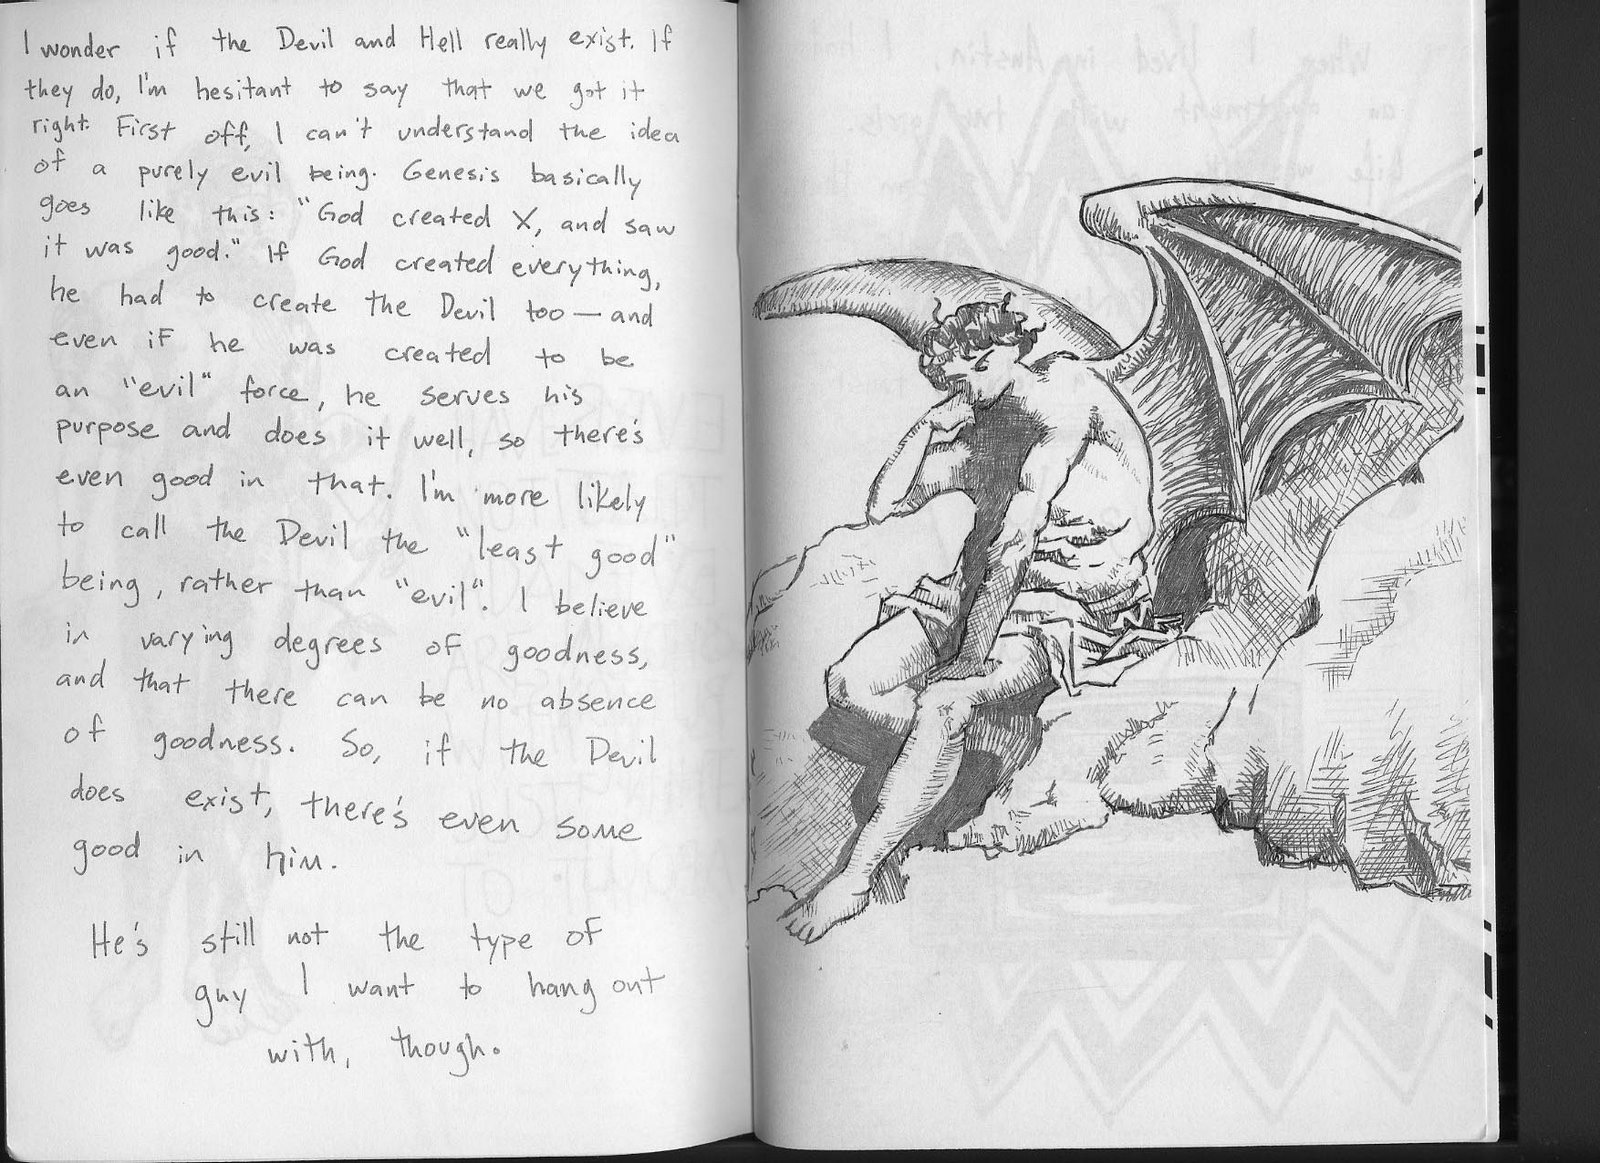 I wonder if the Devil and Hell really exist. If
they do, I'm hesitant to say that we got it
right. First off, I can't understand the idea
of a purely evil being. Genesis basically
goes like this: "God created X, and saw
it was good." If God created everything,
he had to create the Devil too — and
even if he was created to be
an "evil" force, he serves his
purpose and does it well, so there's
even good in that. I'm more likely
to call the Devil the "least good"
being, rather than "evil". I believe
in varying degrees of goodness,
and that there can be no absence
of goodness. So, if the Devil
does exist, there's even some
good in him.
He's still not the type of
guy I want to hang out
with, though.
When I lived in Austin, I had